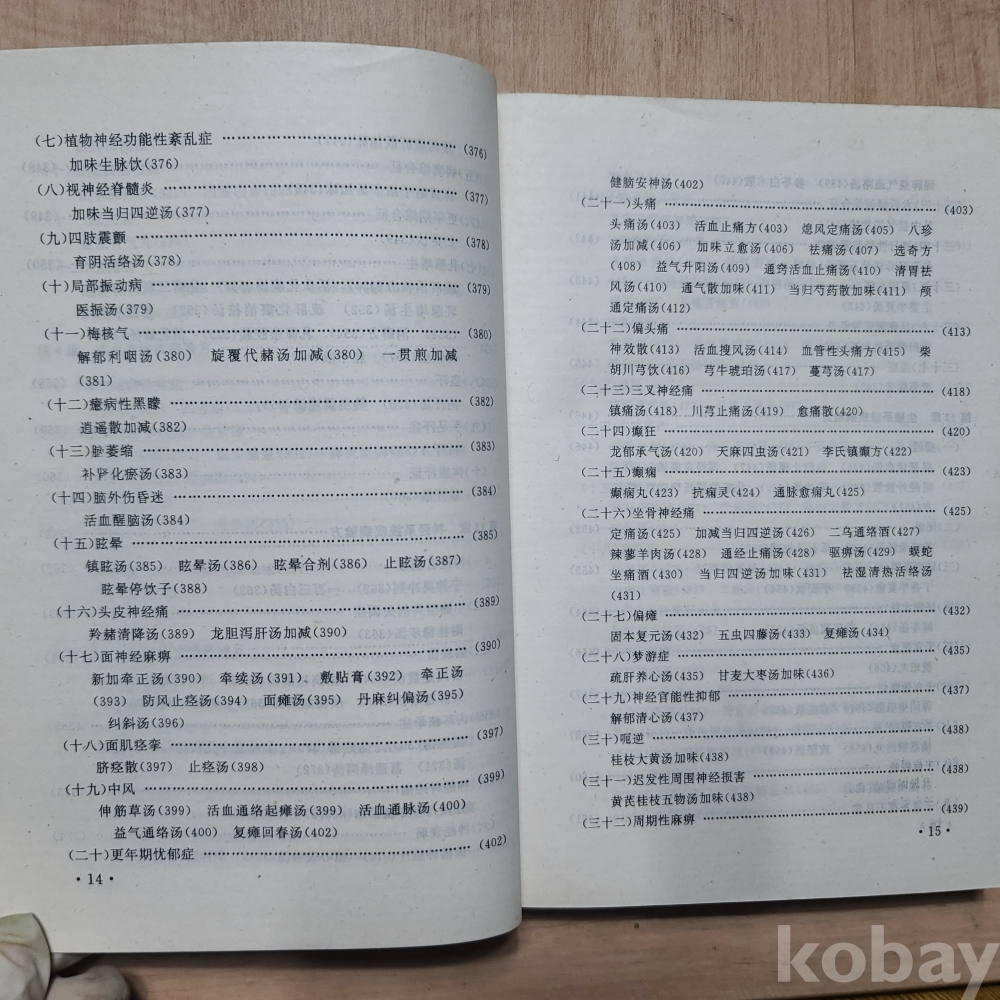 (七)植物神经功能性紊乱症 ……………………………… (376)
加味生脉饮(376)
(八)视神经脊髓炎 ……………………………… (377)
加味当归四逆汤(377)
(九)四肢震颤 ……………………………… (378)
育阴活络汤(378)
(十)局部振动病 ……………………………… (379)
医振汤(379)
(十一)梅核气 ……………………………… (380)
解郁利咽汤(380) 旋覆代赭汤加减(380) 一贯煎加减
(381)
(十二)癔病性黑矇 ……………………………… (382)
逍遥散加减(382)
(十三)脑萎缩 ……………………………… (383)
补肾化瘀汤(383)
(十四)脑外伤昏迷 ……………………………… (384)
活血醒脑汤(384)
(十五)眩晕 ……………………………… (385)
镇眩汤(385) 眩晕汤(386) 眩晕合剂(386) 止眩汤(387)
眩晕停饮子(388)
(十六)头皮神经痛 ……………………………… (389)
羚赭清降汤(389) 龙胆泻肝汤加减(390)
(十七)面神经麻痹 ……………………………… (390)
新加牵正汤(390) 牵续汤(391)、敷贴膏(392) 牵正汤
(393) 防风止痉汤(394) 面瘫汤(395) 丹麻纠偏汤(395)
纠斜汤(396)
(十八)面肌痉挛 ……………………………… (397)
脐痉散(397) 止痉汤(398)
(十九)中风 ……………………………… (399)
伸筋草汤(399) 活血通络起瘫汤(399) 活血通脉汤(400)
益气通络汤(400) 复瘫回春汤(402)
(二十)更年期忧郁症 ……………………………… (402)
·14·
健脑安神汤(402)
(二十一)头痛 ……………………………… (403)
头痛汤(403) 活血止痛方(403) 熄风定痛汤(405) 八珍
汤加减(406) 加味立愈汤(406) 祛痛汤(407) 选奇方
(408) 益气升阳汤(409) 通窍活血止痛汤(410) 清胃祛
风汤(410) 通气散加味(411) 当归芍药散加味(411) 颅
通定痛汤(412)
(二十二)偏头痛 ……………………………… (413)
神效散(413) 活血搜风汤(414) 血管性头痛方(415) 柴
胡川芎饮(416) 芎牛琥珀汤(417) 蔓芎汤(417)
(二十三)三叉神经痛 ……………………………… (418)
镇痛汤(418) 川芎止痛汤(419) 愈痛散(420)
(二十四)癫狂 ……………………………… (420)
龙郁承气汤(420) 天麻四虫汤(421) 李氏镇癫方(422)
(二十五)癫痫 ……………………………… (423)
癫痫丸(423) 抗痫灵(424) 通脉愈痫丸(425)
(二十六)坐骨神经痛 ……………………………… (425)
定痛汤(425) 加减当归四逆汤(426) 二乌通络酒(427)
辣蓼羊肉汤(428) 通经止痛汤(428) 驱痹汤(429) 蜈蛇
坐痛酒(430) 当归四逆汤加味(431) 祛湿清热活络汤
(431)
(二十七)偏瘫 ……………………………… (432)
固本复元汤(432) 五虫四藤汤(433) 复瘫汤(434)
(二十八)梦游症 ……………………………… (435)
疏肝养心汤(435) 甘麦大枣汤加味(436)
(二十九)神经官能性抑郁 ……………………………… (437)
解郁清心汤(437)
(三十)呃逆 ……………………………… (438)
桂枝大黄汤加味(438)
(三十一)迟发性周围神经损害 ……………………………… (438)
黄芪桂枝五物汤加味(438)
(三十二)周期性麻痹 ……………………………… (439)
·15·
kobay